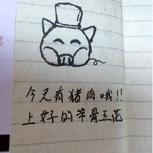 今天有猪肉哦!!
上好的筹骨五花